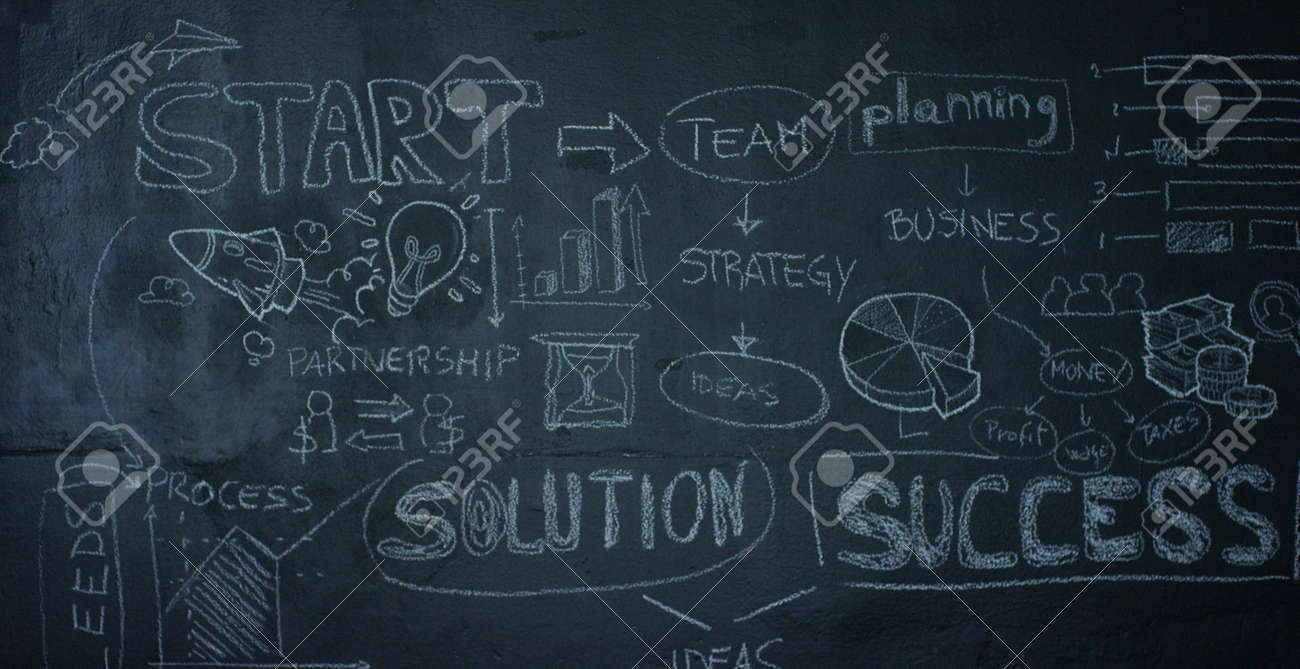 START
TEAM
planning
BUSINESS
STRATEGY
PARTNERSHIP
IDEAS
MONEY
Profit
TAXES
PROCESS
SOLUTION
SUCCESS
IDEAS
2
3
1
$
$
123RF
123RF
123RF
123RF
123RF